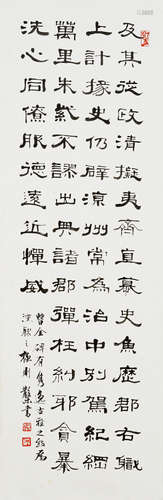 及其從政清擬夷齊直慕史魚歷郡右職
上計掾史仍辟涼州常為治中別駕紀綱
萬里朱紫不謬出典諸郡彈枉糾邪貪暴
洗心同僚服德遠近憚威
曹全碑有雋逸古雅之